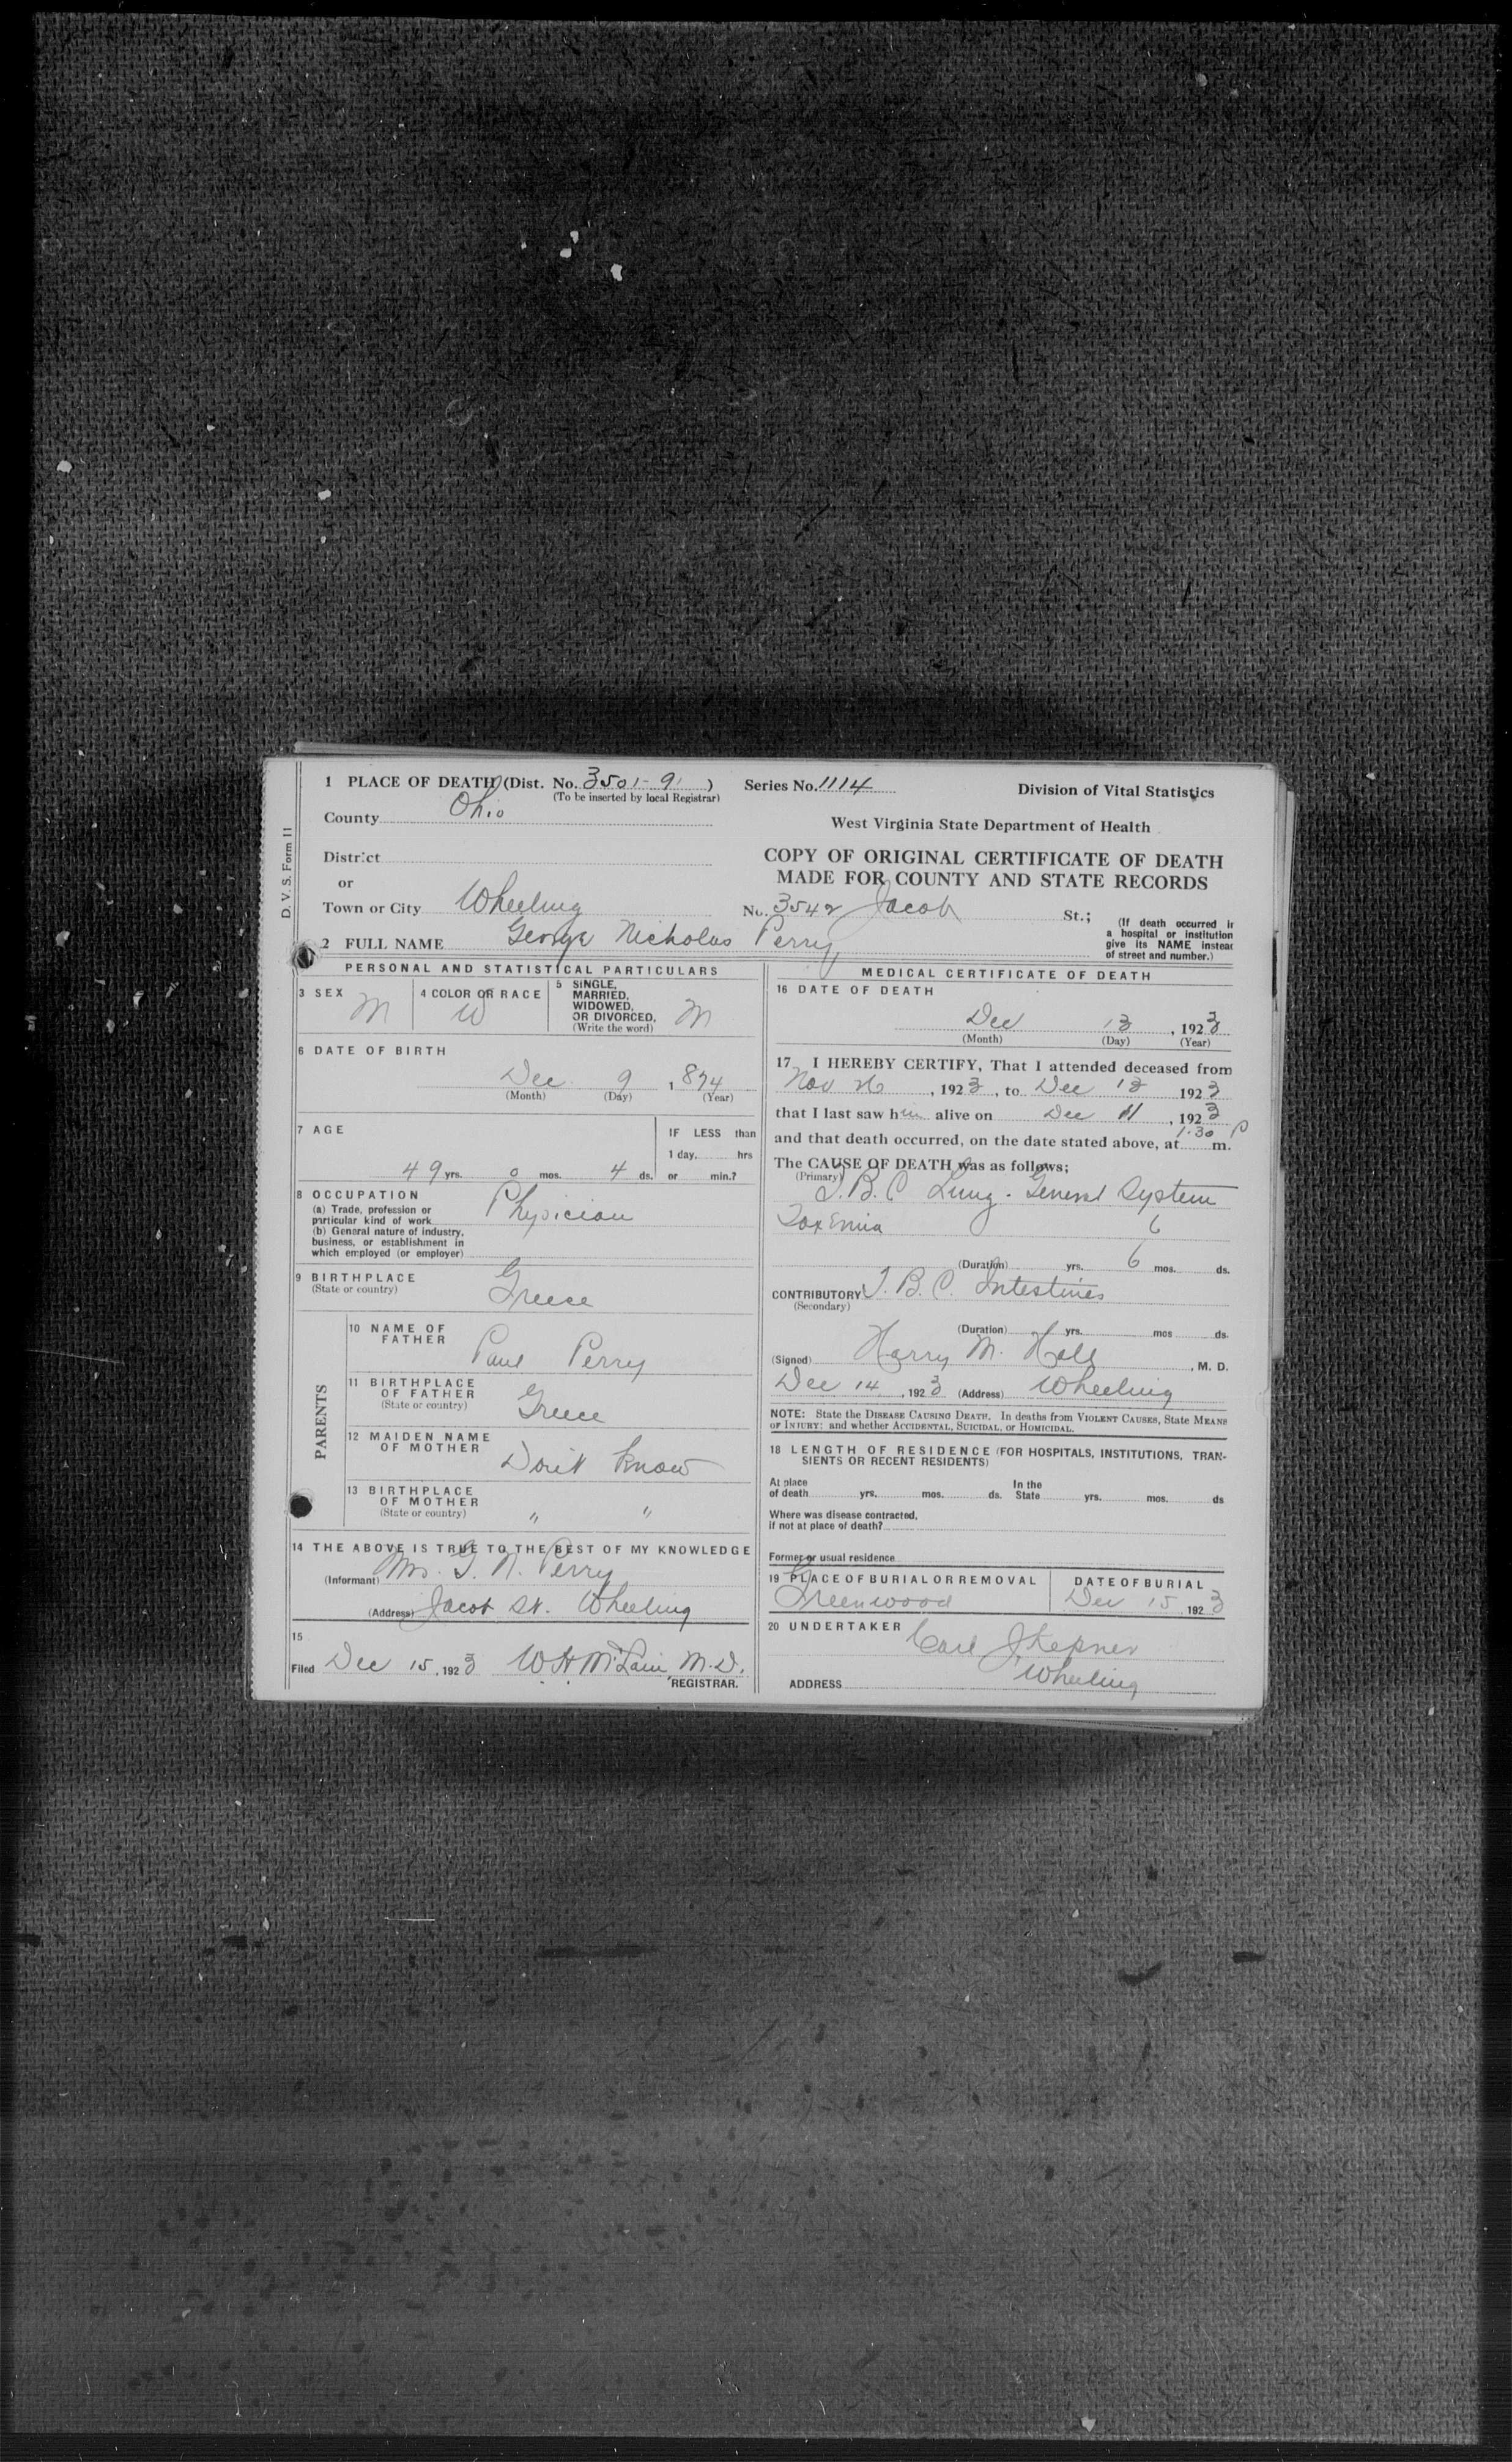 D. V. S. Form 11
1 PLACE OF DEATH (Dist. No. 3501-91)
(To be inserted by local Registrar)
County Ohio
District
or
Town or City Wheeling
2 FULL NAME George Nicholas Perry
Series No. 1114
Division of Vital Statistics
West Virginia State Department of Health
COPY OF ORIGINAL CERTIFICATE OF DEATH
MADE FOR COUNTY AND STATE RECORDS
No. 3542 Jacob St.;
(If death occurred ir
a hospital or institution
give its NAME instead
of street and number.)
PERSONAL AND STATISTICAL PARTICULARS
3 SEX M
4 COLOR OR RACE W
5 SINGLE,
MARRIED,
WIDOWED,
OR DIVORCED,
(Write the word) M
6 DATE OF BIRTH
Dec 9, 1874
(Month) (Day) (Year)
7 AGE
49 yrs. 0 mos. 4 ds.
IF LESS than
1 day, hrs
or min.?
8 OCCUPATION
(a) Trade, profession or
particular kind of work Physician
(b) General nature of industry,
business, or establishment in
which employed (or employer)
9 BIRTHPLACE
(State or country) Greece
PARENTS
10 NAME OF
FATHER Paul Perry
11 BIRTHPLACE
OF FATHER
(State or country) Greece
12 MAIDEN NAME
OF MOTHER Don't Know
13 BIRTHPLACE
OF MOTHER
(State or country) " "
14 THE ABOVE IS TRUE TO THE BEST OF MY KNOWLEDGE
(Informant) Mrs. G. N. Perry
(Address) Jacob St. Wheeling
15
Filed Dec 15, 1923 W H McLain, M.D.
REGISTRAR.
MEDICAL CERTIFICATE OF DEATH
16 DATE OF DEATH
Dec 13, 1923
(Month) (Day) (Year)
17 I HEREBY CERTIFY, That I attended deceased from
Nov 26, 1923, to Dec 13 1923
that I last saw him alive on Dec 11, 1923
and that death occurred, on the date stated above, at 1.30 P m.
The CAUSE OF DEATH was as follows;
(Primary) T. B. C Lung - General System
Toxemia 6
(Duration) yrs. 6 mos. ds.
CONTRIBUTORY T. B. C. Intestines
(Secondary)
(Duration) yrs. mos ds.
(Signed) Harry M. Hall, M. D.
Dec 14, 1923 (Address) Wheeling
NOTE: State the DISEASE CAUSING DEATH. In deaths from VIOLENT CAUSES, State MEANS
OF INJURY; and whether ACCIDENTAL, SUICIDAL, or HOMICIDAL.
18 LENGTH OF RESIDENCE (FOR HOSPITALS, INSTITUTIONS, TRAN-
SIENTS OR RECENT RESIDENTS)
At place
of death yrs. mos. ds.
In the
State yrs. mos. ds
Where was disease contracted,
if not at place of death?
Former or usual residence
19 PLACE OF BURIAL OR REMOVAL
Greenwood
DATE OF BURIAL
Dec 15, 1923
20 UNDERTAKER Carl J Kepner
ADDRESS Wheeling